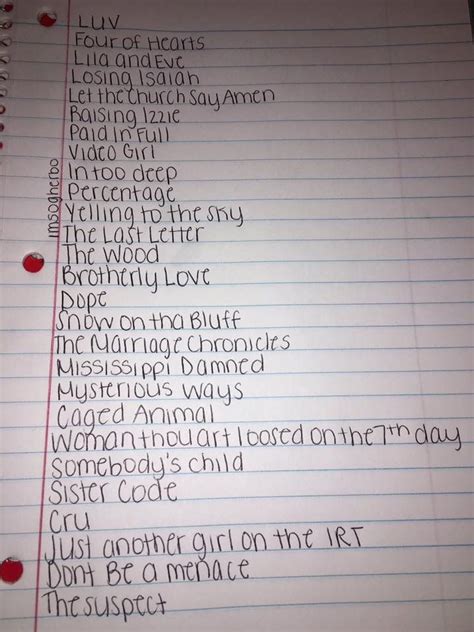 LUV
Four of Hearts
Lila and Eve
Losing Isaiah
Let the Church Say Amen
Raising Izzie
Paid In Full
Video Girl
In too deep
Percentage
Yelling to the sky
The Last Letter
The Wood
Brotherly Love
Dope
Snow on tha Bluff
The Marriage Chronicles
Mississippi Damned
Mysterious Ways
Caged Animal
Woman thou art loosed on the 7th day
Somebody's child
Sister Code
Cru
Just another girl on the IRT
Dont Be a menace
The suspect
imsogherbo